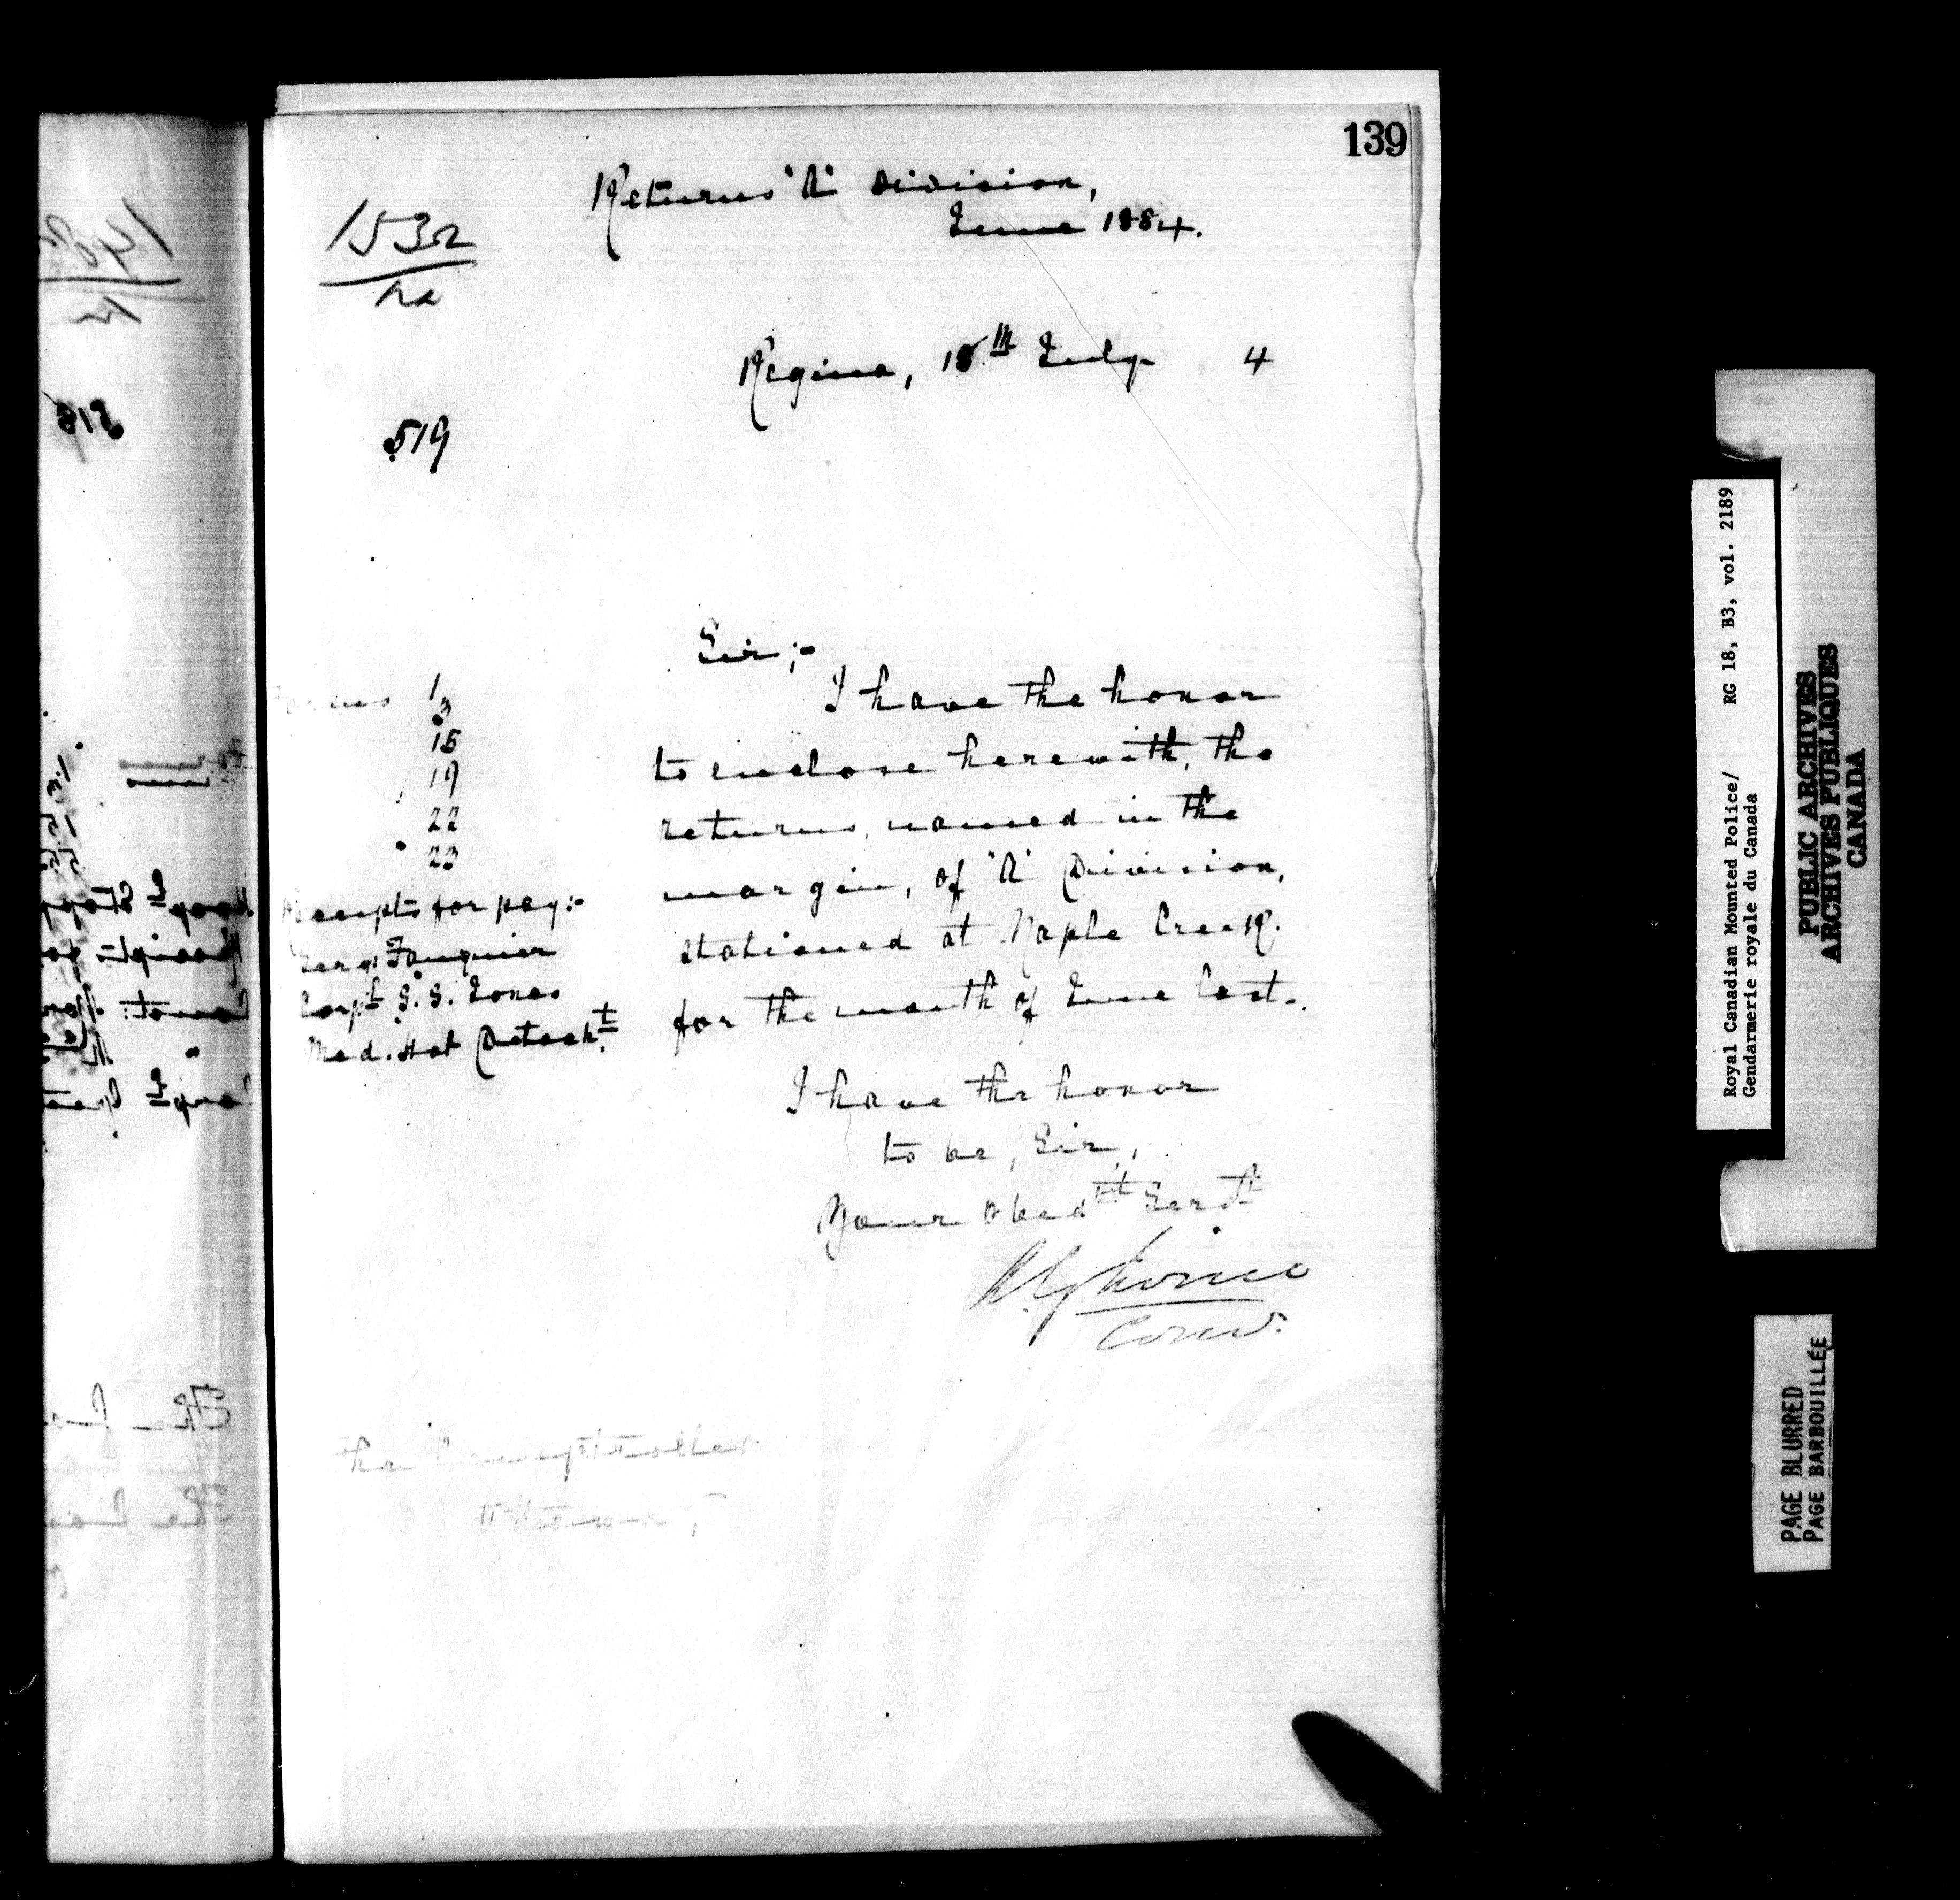 139
Returns "A" Division,
June 1884.
Regina, 18th July 4
519
Sir;-
I have the honor
to enclose herewith, the
returns, named in the
margin, of "A" Division,
stationed at Maple Creek.
for the month of June last.
1
3
15
19
22
23
Receipts for pay:-
Serg: Fouquier
Corpl S. S. Jones
Med. Hat Detacht
I have the honor
to be, Sir,
Your obedt Servt
Com.
The Comptroller
Ottawa,
Royal Canadian Mounted Police/ RG 18, B3, vol. 2189
Gendarmerie royale du Canada
PUBLIC ARCHIVES
ARCHIVES PUBLIQUES
CANADA
PAGE BLURRED
PAGE BARBOUILLÉE